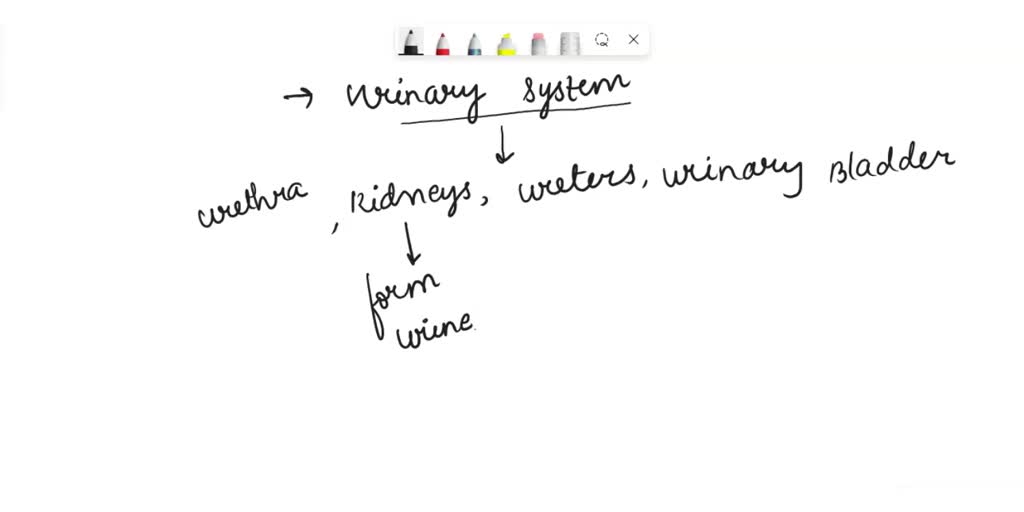 → Urinary System
urethra, Kidneys, ureters, urinary Bladder
form
urine